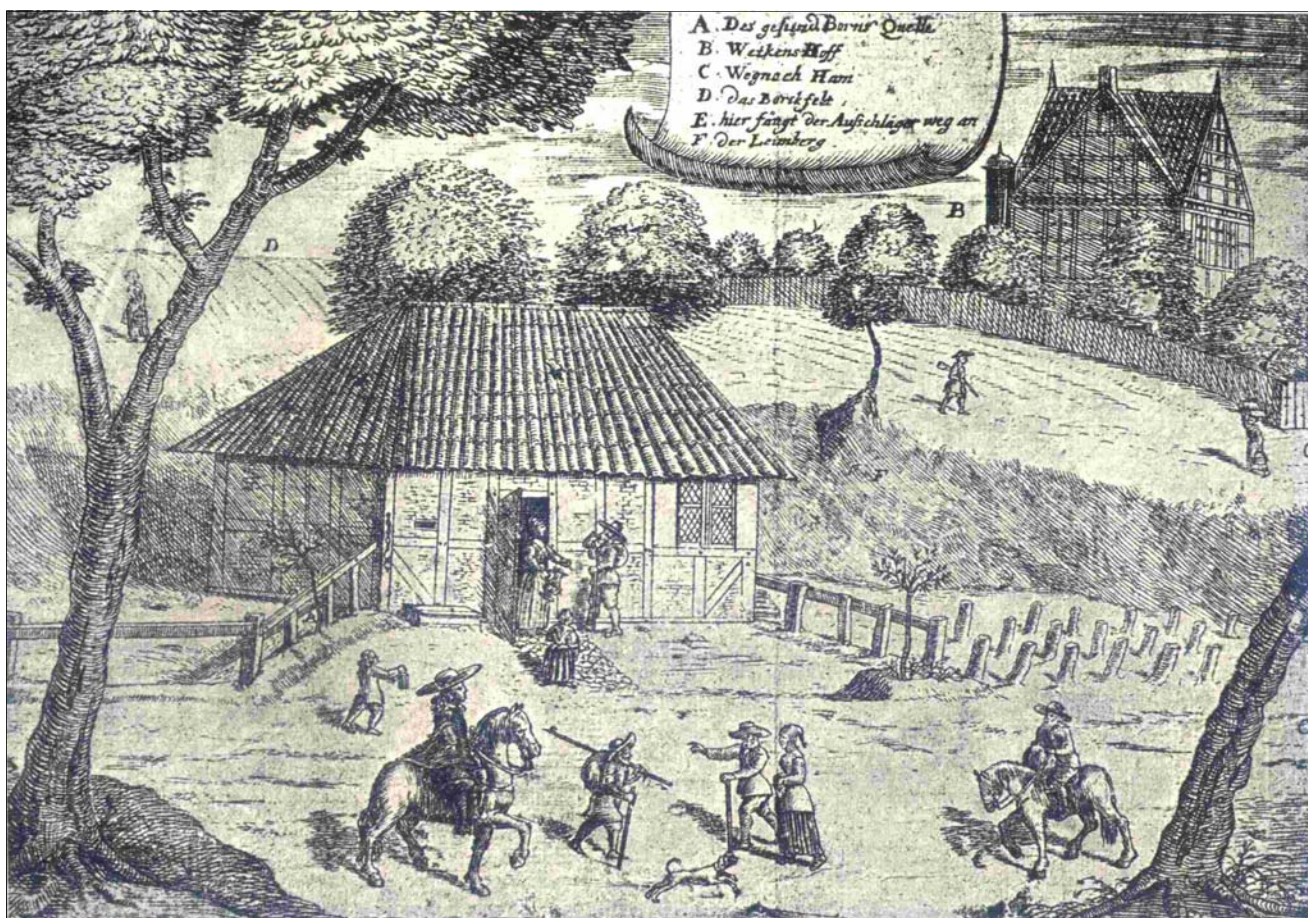 A. Des gesund Borns Quelle
B. Weikens Hoff
C. Weg nach Ham
D. das Borchfelt
E. hier fängt der Aufschläger weg an
F. der Leimberg
D
B
F
C